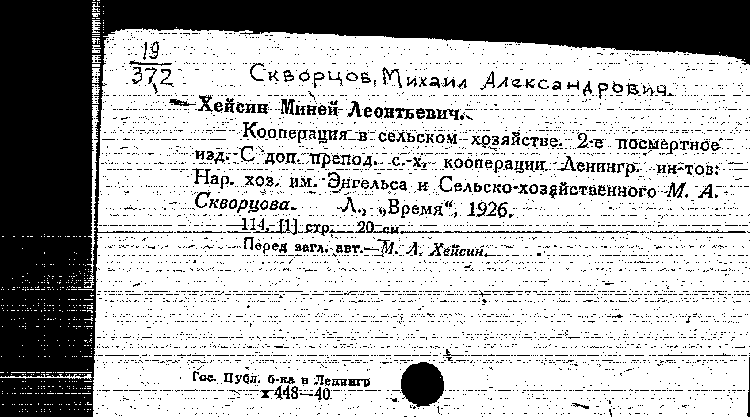 19
372
Скворцов, Михаил Александрович.
Хейсин Миней Леонтьевич.
Кооперация в сельском хозяйстве. 2-е посмертное
изд. С доп. препод. с.-х. кооперации Ленингр. ин-тов:
Нар. хоз. им. Энгельса и Сельско-хозяйственного М. А.
Скворцова. Л., „Время“, 1926.
114, [1] стр. 20 см.
Перед загл. авт.—М. Л. Хейсин.
Гос. Публ. б-ка в Ленингр
х 448—40